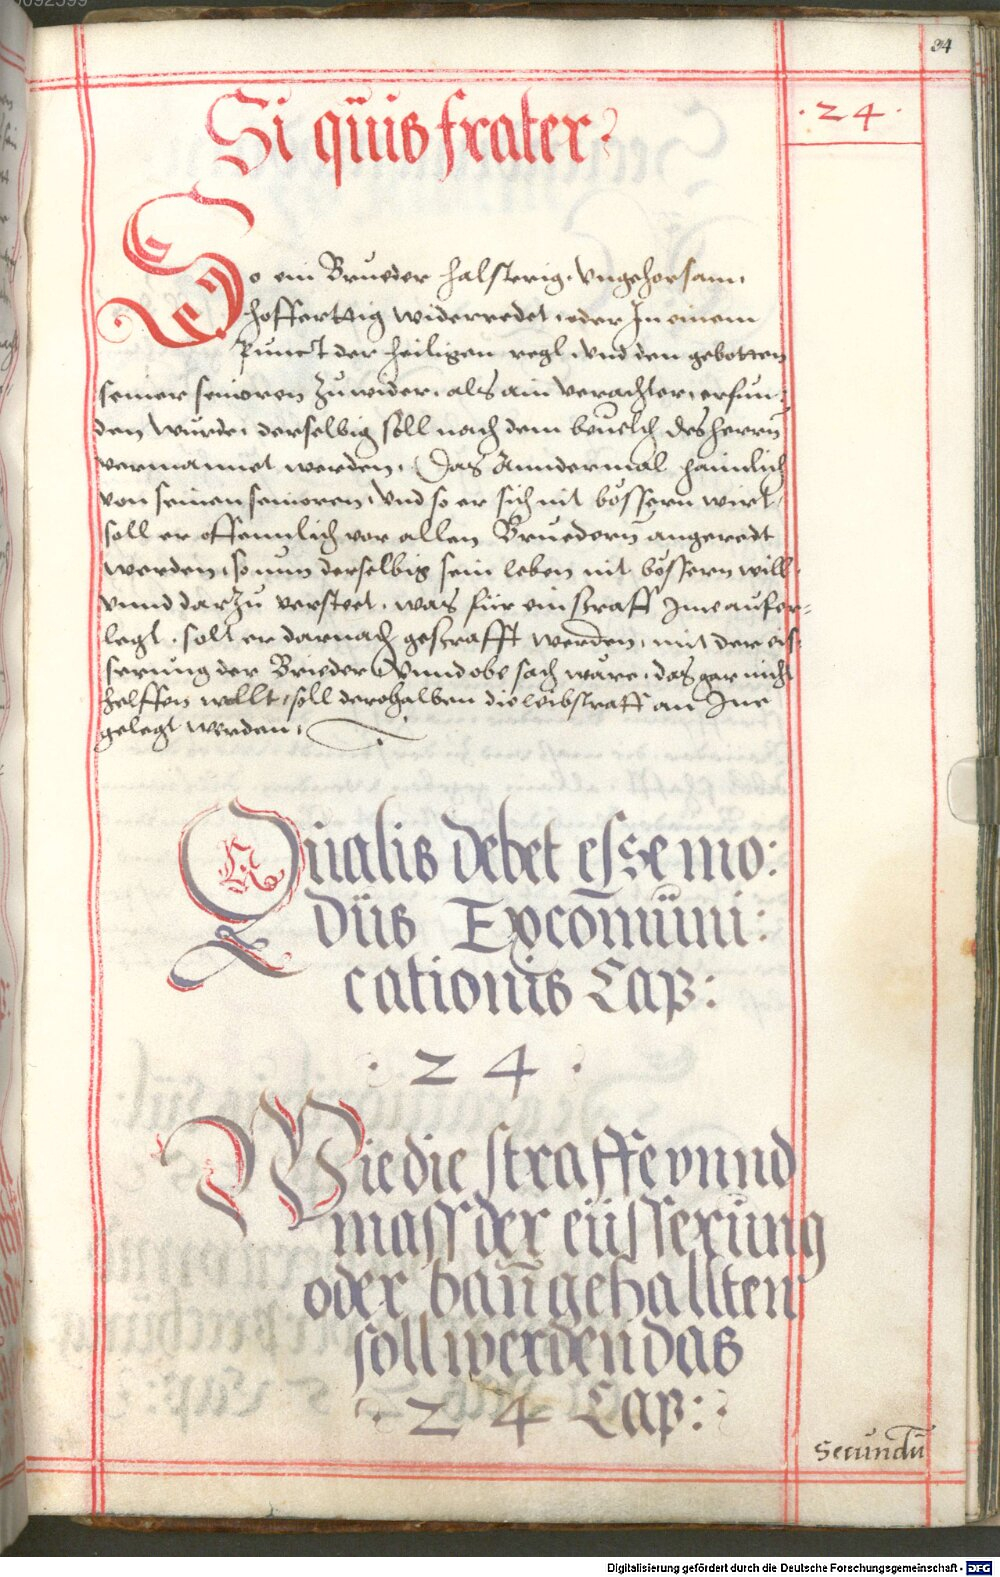 34
· 24 ·
Si quis frater ·
So ein Brueder halsterig, vngehorsam,
hoffertig widerredet, oder In einem
Punct der heiligen regl, vnd den gebotten
seiner senioren zuwider, als ain verachter, erfun:
den wurde, derselbig soll nach dem beuelch des herrn
vermannet werden, Das Anndermal haimlich
von seinen senioren, vnd so er sich nit bössern wirt,
soll er offennlich vor allen Bruedern angeredt
werden, so nun derselbig sein leben nit bössern will,
vnnd darzu versteet, was für ein straff Ime aufer=
legt, soll er darnach gestrafft werden, mit der eis:
serung der Brieder, Vnnd obs sach ware, das gar nicht
helffen wellt, soll derohalben die leibstraff an Ime
gelegt werden,
Qualis debet esse mo:
dus Excōmuni:
cationis Cap:
· 24 ·
Wie die straffe vnnd
mass der eüsserung
oder ban̄ gehallten
soll werden das
· 24 Cap: ·
Secundū
Digitalisierung gefördert durch die Deutsche Forschungsgemeinschaft - DFG